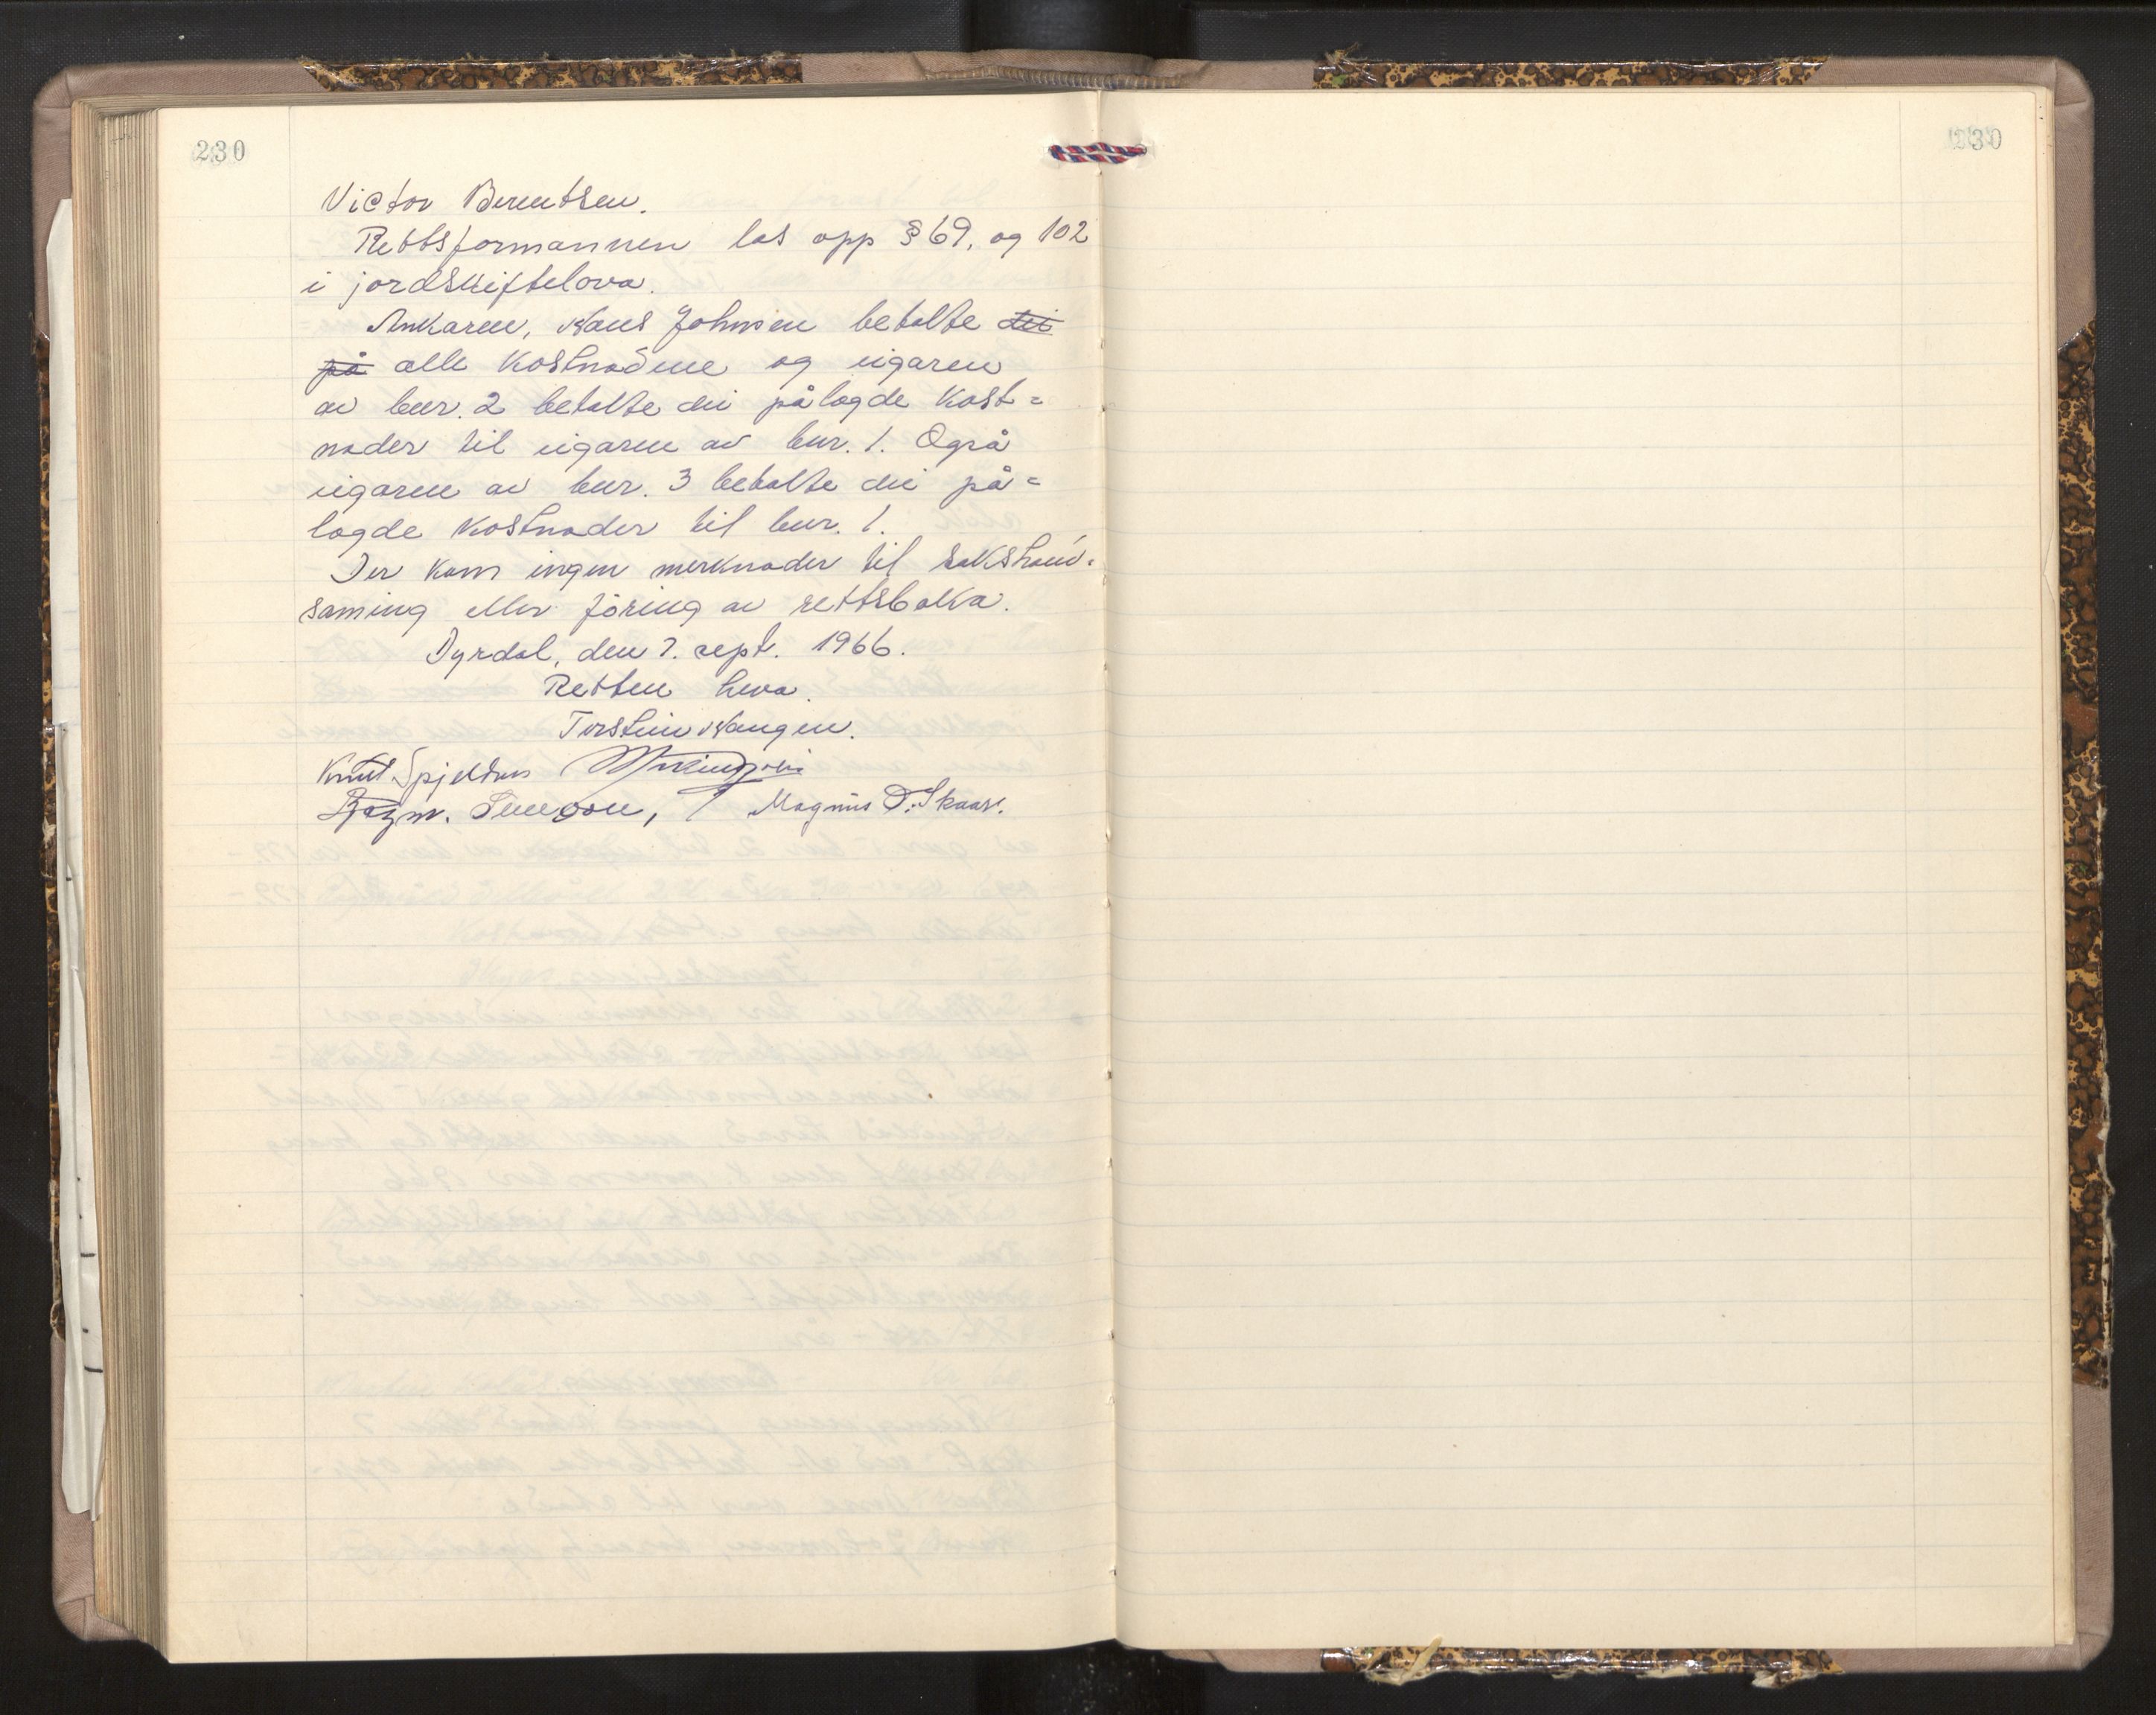 230
230
Victor Berentsen.
Rettsformannen las opp § 69. og 102
i jordskiftelova.
Ankaren, Hans Johnsen betalte dei
på alle kostnadene og eigaren
av bnr. 2 betalte dei pålagde kost=
nader til eigaren av bnr. 1. Også
eigaren av bnr. 3 betalte dei på=
lagde kostnader til bnr. 1.
Der kom ingen merknader til sakshand=
saming eller föring av rettsboka.
Dyrdal, den 7. sept. 1966.
Retten heva.
Torstein Haugen.
Knut Spjeldnes
Magnus D. Skaar.